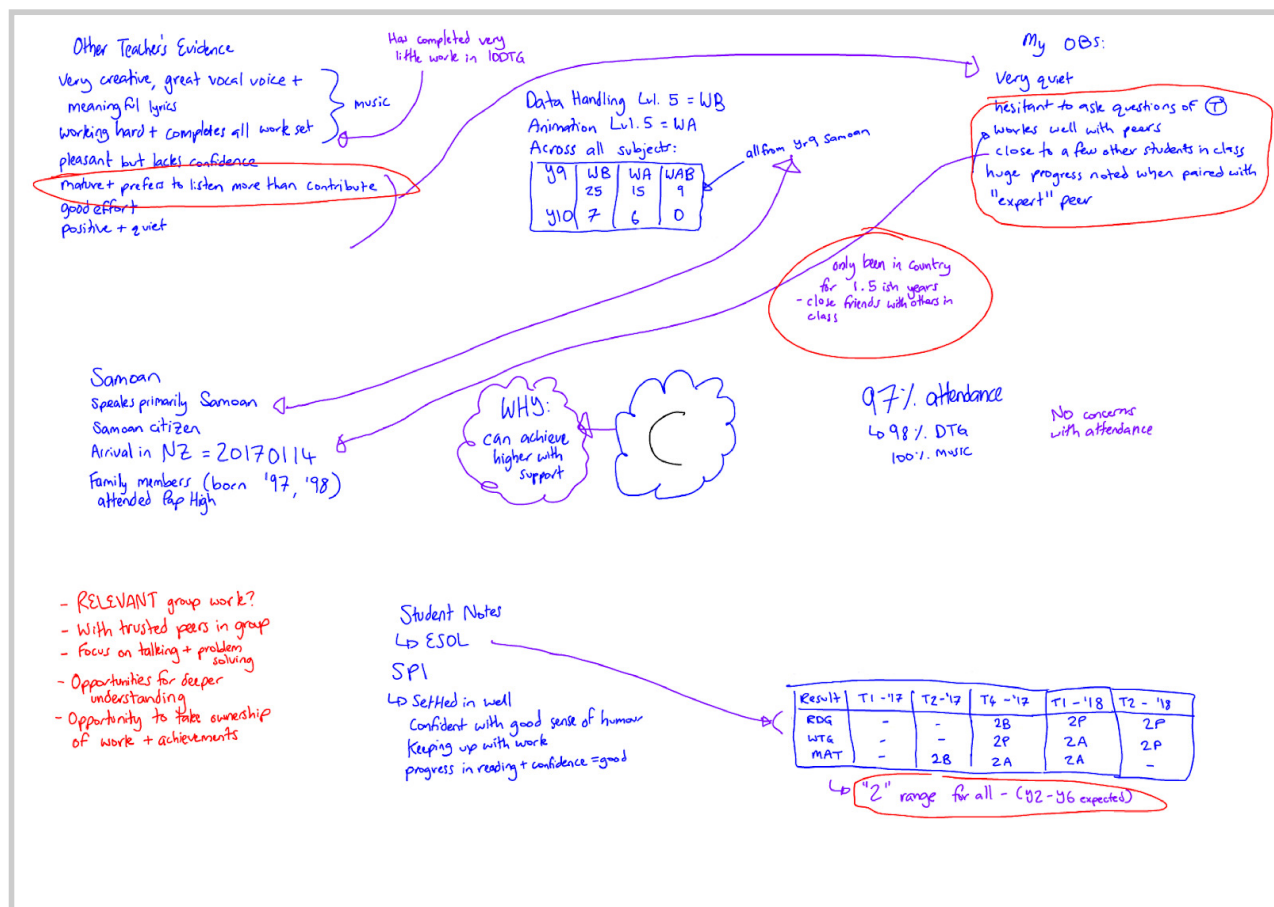 Other Teacher's Evidence
Very creative, great vocal voice +
meaningful lyrics
working hard + completes all work set
music
pleasant but lacks confidence
mature + prefers to listen more than contribute
good effort
positive + quiet
Has completed very
little work in 10DTG
Data Handling Lvl. 5 = WB
Animation Lvl. 5 = WA
Across all subjects:
y9 WB WA WAB
25 15 9
y10 7 6 0
all from yr9 Samoan
My OBs:
Very quiet
hesitant to ask questions of T
works well with peers
close to a few other students in class
huge progress noted when paired with
"expert" peer
only been in country
for 1.5 ish years
- close friends with others in
class
Samoan
Speaks primarily Samoan
Samoan citizen
Arrival in NZ = 20170114
Family members (born '97, '98)
attended Pap High
WHY:
can achieve
higher with
support
C
97% attendance
↳ 98% DTG
100% MUSIC
No concerns
with attendance
- RELEVANT group work?
- With trusted peers in group
- Focus on talking + problem
solving
- Opportunities for deeper
understanding
- Opportunity to take ownership
of work + achievements
Student Notes
↳ ESOL
SPI
↳ Settled in well
Confident with good sense of humour
Keeping up with work
progress in reading + confidence = good
Result T1 - '17 T2 - '17 T4 - '17 T1 - '18 T2 - '18
RDG - - 2B 2P 2P
WTG - - 2P 2A 2P
MAT - 2B 2A 2A -
↳ "2" range for all - (y2 - y6 expected)